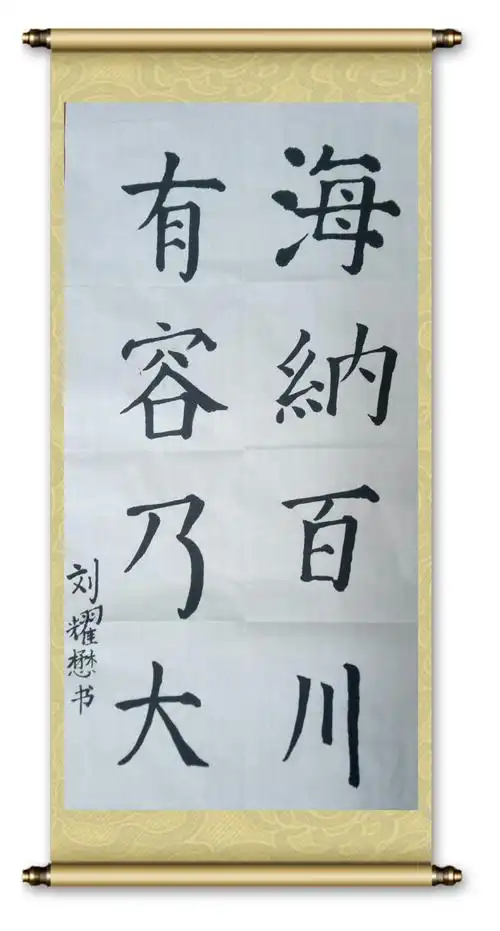 海納百川
有容乃大
刘耀懋书